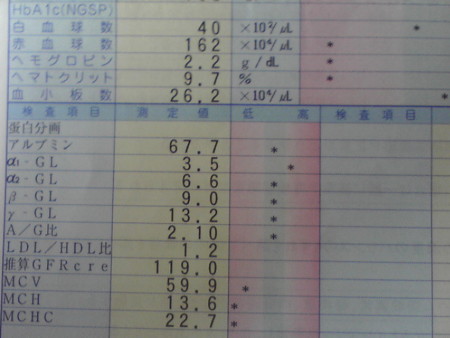 HbA1c(NGSP)
白血球数 40 ×10²/μL *
赤血球数 162 ×10⁴/μL *
ヘモグロビン 2.2 g/dL *
ヘマトクリット 9.7 % *
血小板数 26.2 ×10⁴/μL *
検査項目 測定値 低 高 検査項目
蛋白分画
アルブミン 67.7 *
α₁-GL 3.5 *
α₂-GL 6.6 *
β-GL 9.0 *
γ-GL 13.2 *
A/G比 2.10 *
LDL/HDL比 1.2
推算GFRcre 119.0
MCV 59.9 *
MCH 13.6 *
MCHC 22.7 *